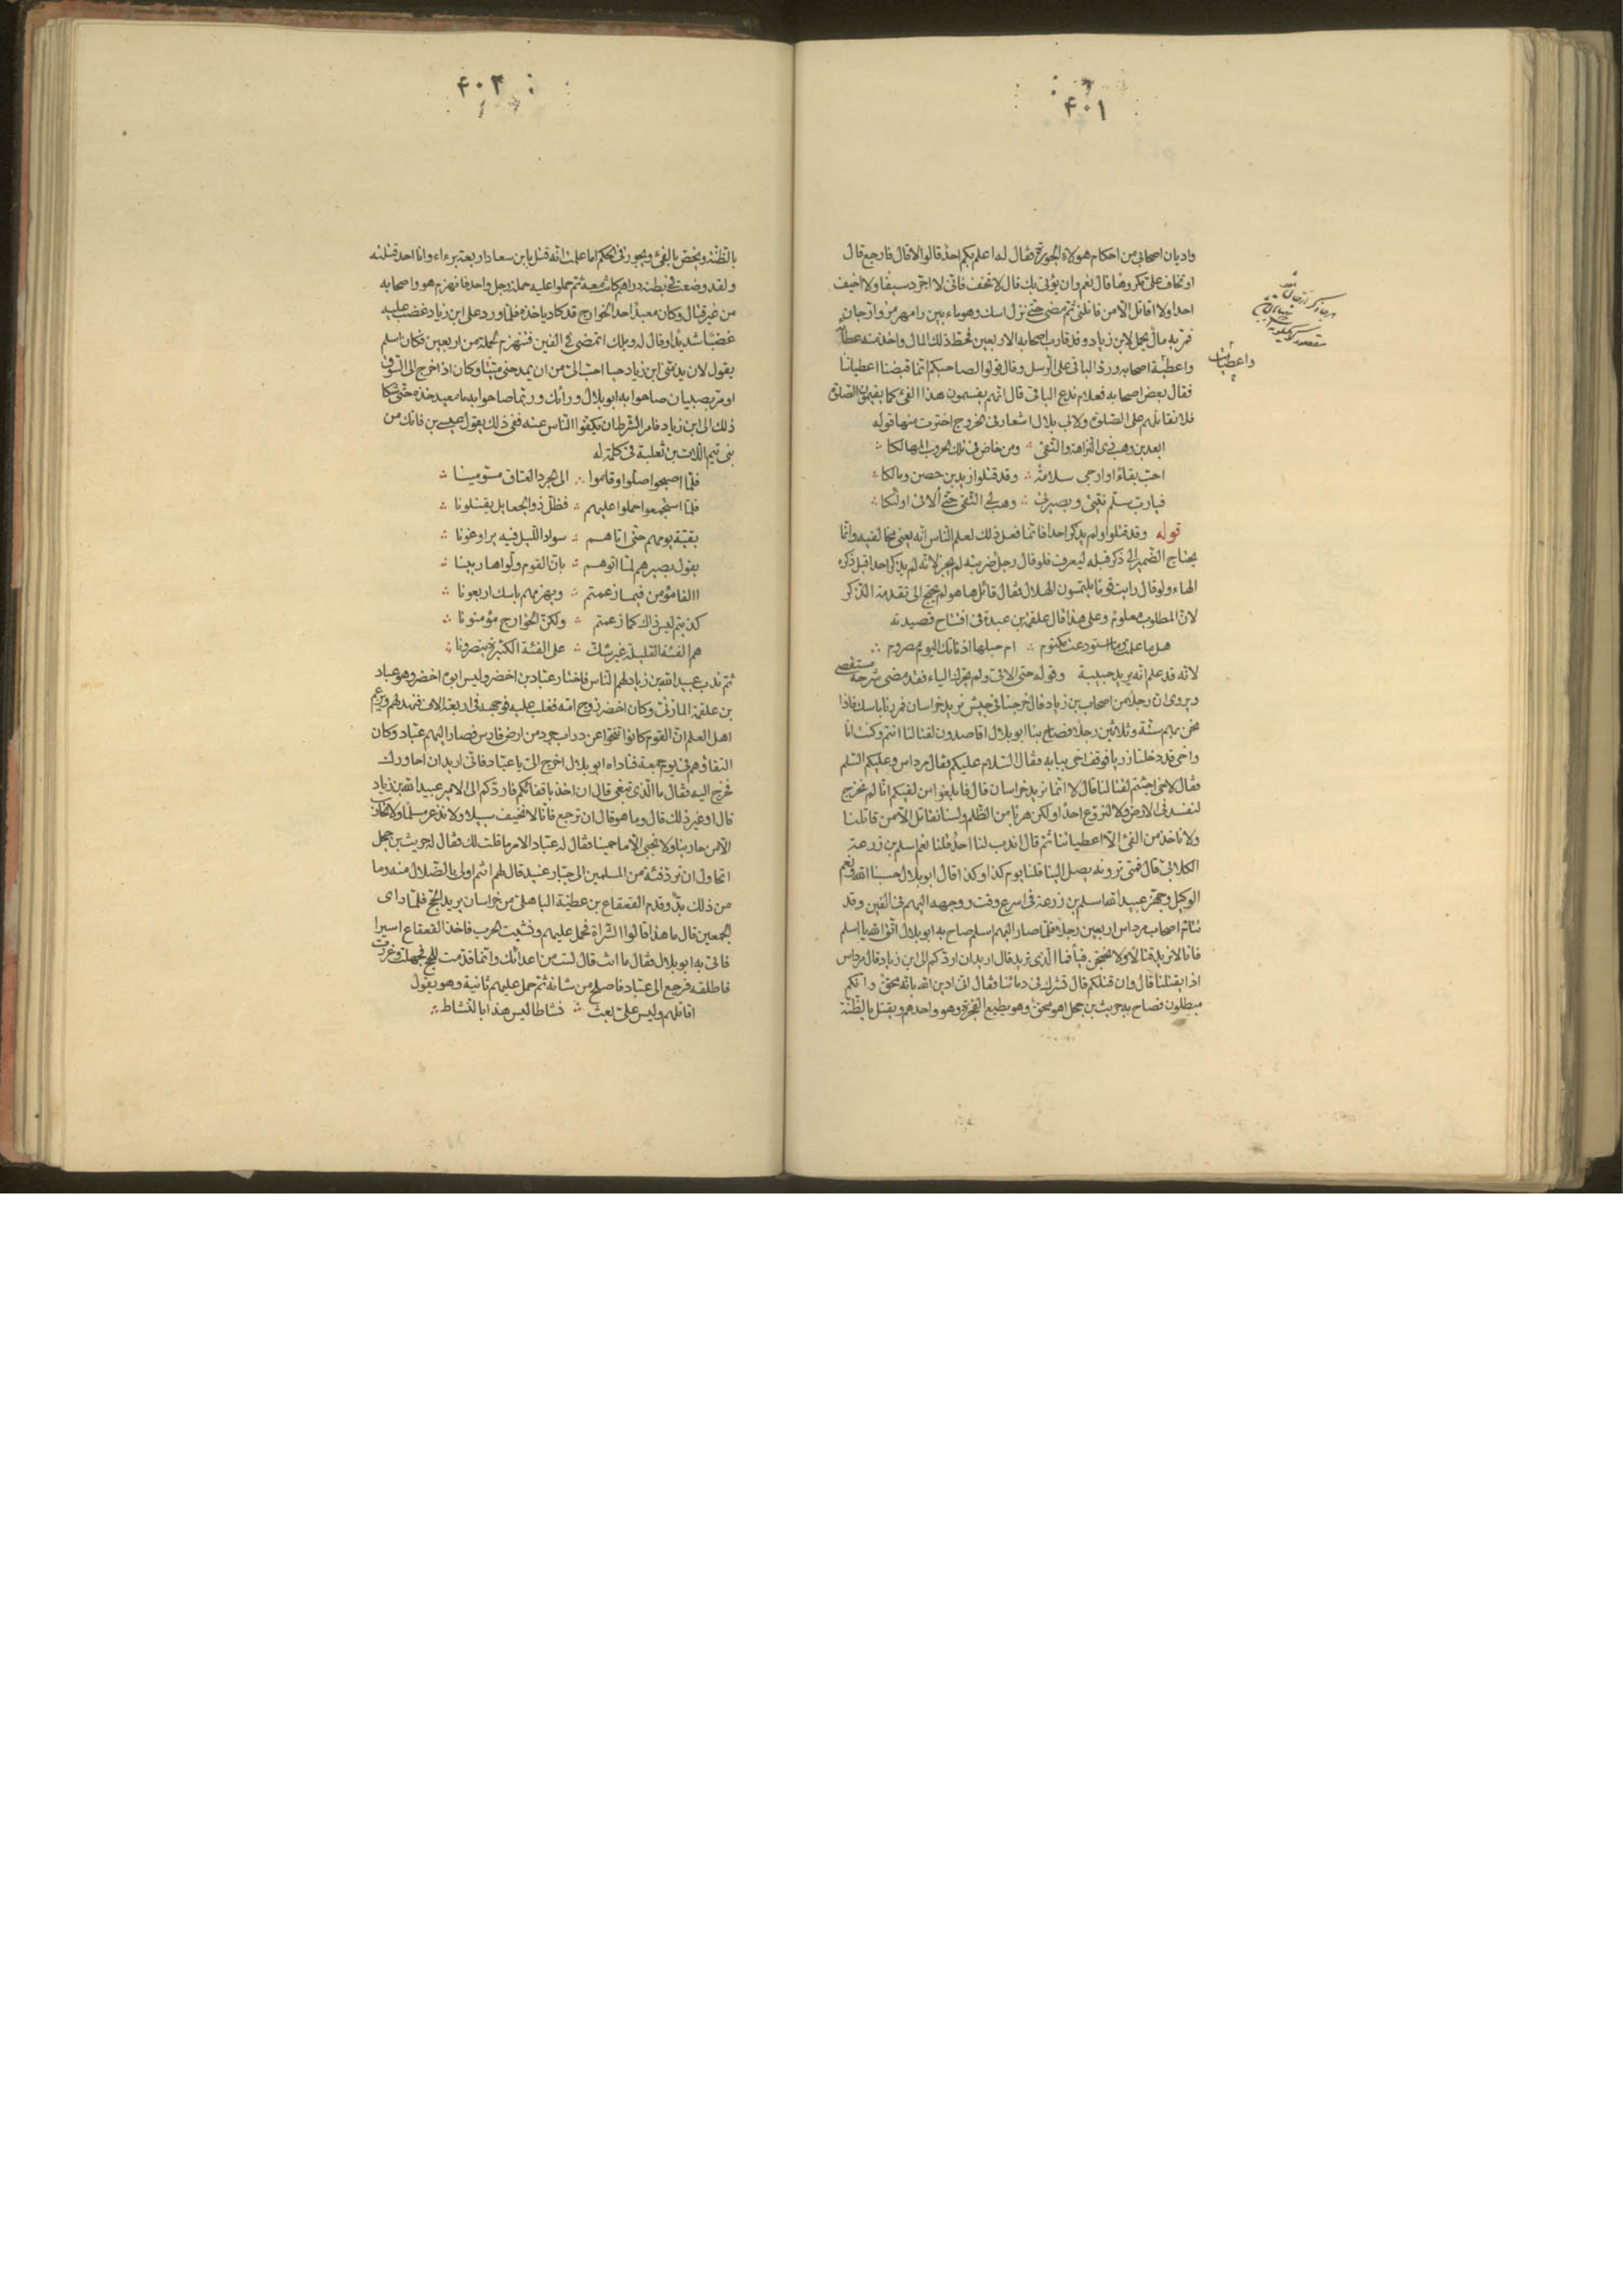 ۴۰۱
واديان اصحابى من احكام هولاء الجورة فقال له اعلم بكم احد قالوا لا قال فارجع قال
او تخاف على مكروها قال نعم وان يؤتى بك قال لا تخف فانى لا اجرد سيفا ولا اخيف
احدا ولا اقاتل الا من قاتلنى ثم مضى حتى نزل اسك وهو ماء بين رامهرمز وارجان
فمر به مال يحمل لابن زياد وقد قارب اصحابه الاربعين فحط ذلك المال واخذ منه عطاه
واعطية اصحابه ورد الباقى على الرسل وقال قولوا لصاحبكم انما قبضنا اعطياتنا
فقال بعض اصحابه فعلام ندع الباقى قال انهم يقسمون هذا الفئ كما يقيمون الصلوة
فلا نقاتلهم على الصلوة ولابى بلال اشعار فى الخروج اخترت منها قوله
ابعد بن وهب ذى النزاهة والتقى ومن خاض فى تلك الحروب المهالكا
احب بقاء او ارجى سلامة وقد قتلوا زيد بن حصن ومالكا
فيا رب سلم نيتى وبصيرتى وهب لى التقى حتى ألاقى اولئكا
قوله وقد قتلوا ولم يذكر احدا فانما فعل ذلك لعلم الناس انه يعنى مخالفيه وانما
يحتاج الضمير الى ذكر قبله ليعرف فلو قال رجل ضربته لم يجز لانه لم يذكر احدا قبل ذكره
الهاء ولو قال رايت قوما يلتمسون الهلال فقال قائل ها هو لم يحتج الى تقدمة الذكر
لان المطلوب معلوم وعلى هذا قال علقمة بن عبدة فى افتتاح قصيدته
هل ما علمت وما استودعت مكتوم ام حبلها اذ ناتك اليوم مصروم
لانه قد علم انه يريد حبيبة وقوله حتى الاقى ولم يحرك الياء فقد مضى شرحه مستقصى
ويروى ان رجلا من اصحاب بن زياد قال خرجنا فى جيش نريد خراسان فمررنا باسك فاذا
نحن بهم ستة وثلاثين رجلا فصاح بنا ابو بلال اقاصدون لقتالنا انتم وكنت انا
واخى قد دخلنا زربا فوقف اخى ببابه فقال السلام عليكم فقال مرداس وعليكم السلم
فقال لاخى اجئتم لقتالنا قال لا انما نريد خراسان قال فابلغوا من لقيكم انا لم نخرج
لنفسد فى الارض ولا لنروع احدا ولكن هربا من الظلم ولسنا نقاتل الا من قاتلنا
ولا ناخذ من الفئ الا اعطياتنا ثم قال اندب لنا احد قلنا نعم اسلم بن زرعة
الكلابى قال فمتى ترونه يصل الينا قلنا يوم كذا وكذا قال ابو بلال حسبنا الله ونعم
الوكيل وجهز عبيد الله اسلم بن زرعة فى اسرع وقت ووجهه اليهم فى الفين وقد
تتام اصحاب مرداس اربعين رجلا فلما صار اليهم اسلم صاح به ابو بلال اتق الله يا اسلم
فانا لا نريد قتالا ولا نحتجن فيأ فما الذى تريد قال اريد ان اردكم الى ابن زياد قال مرداس
اذا يقتلنا قال وان قتلكم قال تشرك فى دمائنا فقال انى ادين الله بانه محق وانكم
مبطلون فصاح به حريث بن جحل اهو محق وهو يطيع الفجرة وهو واحدهم ويقتل بالظنة
واعطيات
۴۰۲
بالظنة ويخص بالفئ ويجور فى الحكم اما علمت انه قتل بابن سعاد اربعة برءاء وانا احد قتلته
ولقد وضعت فى بطنه دراهم كانت معه ثم حملوا عليه حملة رجل واحد فانهزم هو واصحابه
من غير قتال وكان معبد احد الخوارج قد كاد ياخذه فلما ورد على ابن زياد غضب عليه
غضبا شديدا وقال له ويلك اتمضى فى الفين فتنهزم لحملة من اربعين فكان اسلم
يقول لان يذمنى ابن زياد حيا احب الى من ان يمدحنى ميتا وكان اذا خرج الى السوق
او مر بصبيان صاحوا به ابو بلال وراءك وربما صاحوا به يا معبد خذه حتى شكا
ذلك الى ابن زياد فامر الشرط ان يكفوا الناس عنه ففى ذلك يقول عيسى بن فاتك من
بنى تيم اللات بن ثعلبة فى كلمة له
فلما اصبحوا صلوا وقاموا الى الجرد العتاق مسومينا
فلما استجمعوا حملوا عليهم فظل ذوو الجعايل يقتلونا
بقية يومهم حتى اتاهم سواد الليل فيه يراوغونا
يقول بصيرهم لما اتوهم بان القوم ولوا هاربينا
االفا مؤمن فيما زعمتم ويهزمهم باسك اربعونا
كذبتم ليس ذاك كما زعمتم ولكن الخوارج مؤمنونا
هم الفئة القليلة غير شك على الفئة الكثيرة ينصرونا
ثم ندب عبيد الله بن زياد لهم الناس فاختار عباد بن اخضر وليس ابوه اخضر وهو عباد
بن علقمة المازنى وكان اخضر زوج امه فغلب عليه فوجهه فى اربعة الاف فنهد لهم ويزعم
اهل العلم ان القوم كانوا تنحوا عن دراب جرد من ارض فارس فصار اليهم عباد وكان
التقاؤهم فى يوم جمعة فناداه ابو بلال اخرج الى يا عباد فانى اريد ان احاورك
فخرج اليه فقال ما الذى تبغى قال ان اخذ باقفائكم فاردكم الى الامير عبيد الله بن زياد
قال او غير ذلك قال وما هو قال ان ترجع فانا لا نخيف سبيلا ولا نذعر مسلما ولا نحارب
الا من حاربنا ولا نجبى الا ما حمينا فقال له عباد الامر ما قلت لك فقال له حريث بن جحل
اتحاول ان ترد فئة من المسلمين الى جبار عنيد قال لهم انتم اولى بالضلال منه وما
من ذلك بد وقدم القعقاع بن عطية الباهلى من خراسان يريد الحج فلما راى
الجمعين قال ما هذا قالوا الشراة فحمل عليهم ونشبت الحرب فاخذ القعقاع اسيرا
فاتى به ابو بلال فقال ما انت قال لست من اعدائك وانما قدمت للحج فجهلت وغررت
فاطلقه فرجع الى عباد فاصلح من شانه ثم حمل عليهم ثانية وهو يقول
اقاتلهم وليس على بعث نشاطا ليس هذا بالنشاط